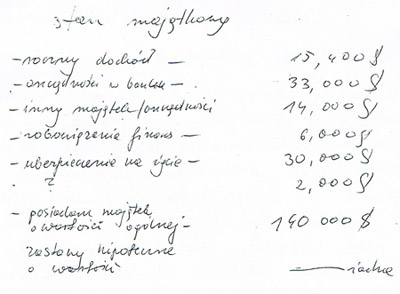 stan majątkowy
– roczny dochód – 15,400 $
– oszczędności w banku – 33,000 $
– inny majątek/oszczędności 14,000 $
– zobowiązania finans – 6,000 $
– ubezpieczenie na życie – 30,000 $
. ? 2,000 $
– posiadam majątek
o wartości ogólnej – 140 000 $
zastawy hipoteczne
o wartości